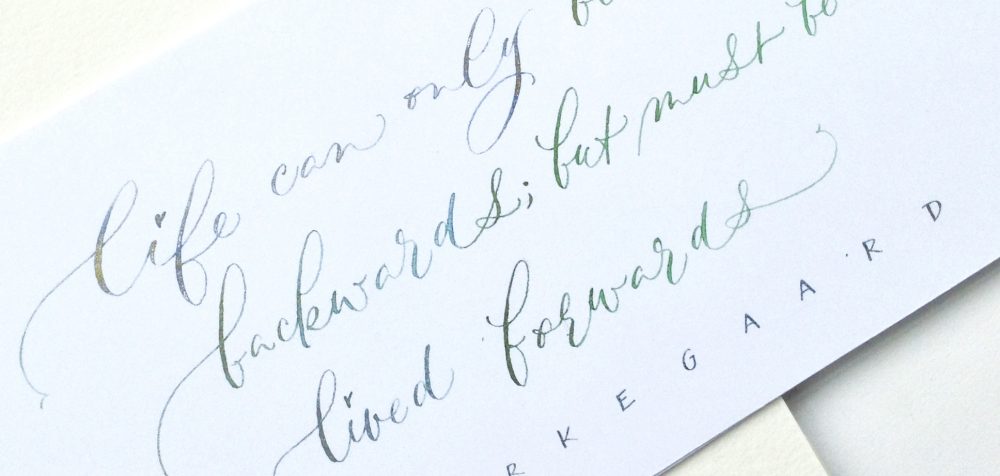 life can only
backwards; but must be
lived forwards
RKEGAARD